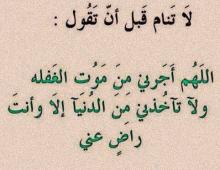 لَا تَنام قَبل أنّ تَقُول :
اللَهُم أَجَرني مِنَ مَوُت الغَفله
ولآ تآخُذني مِنَ الدُنيَآ إلا وأنتَ
راضٍ عني